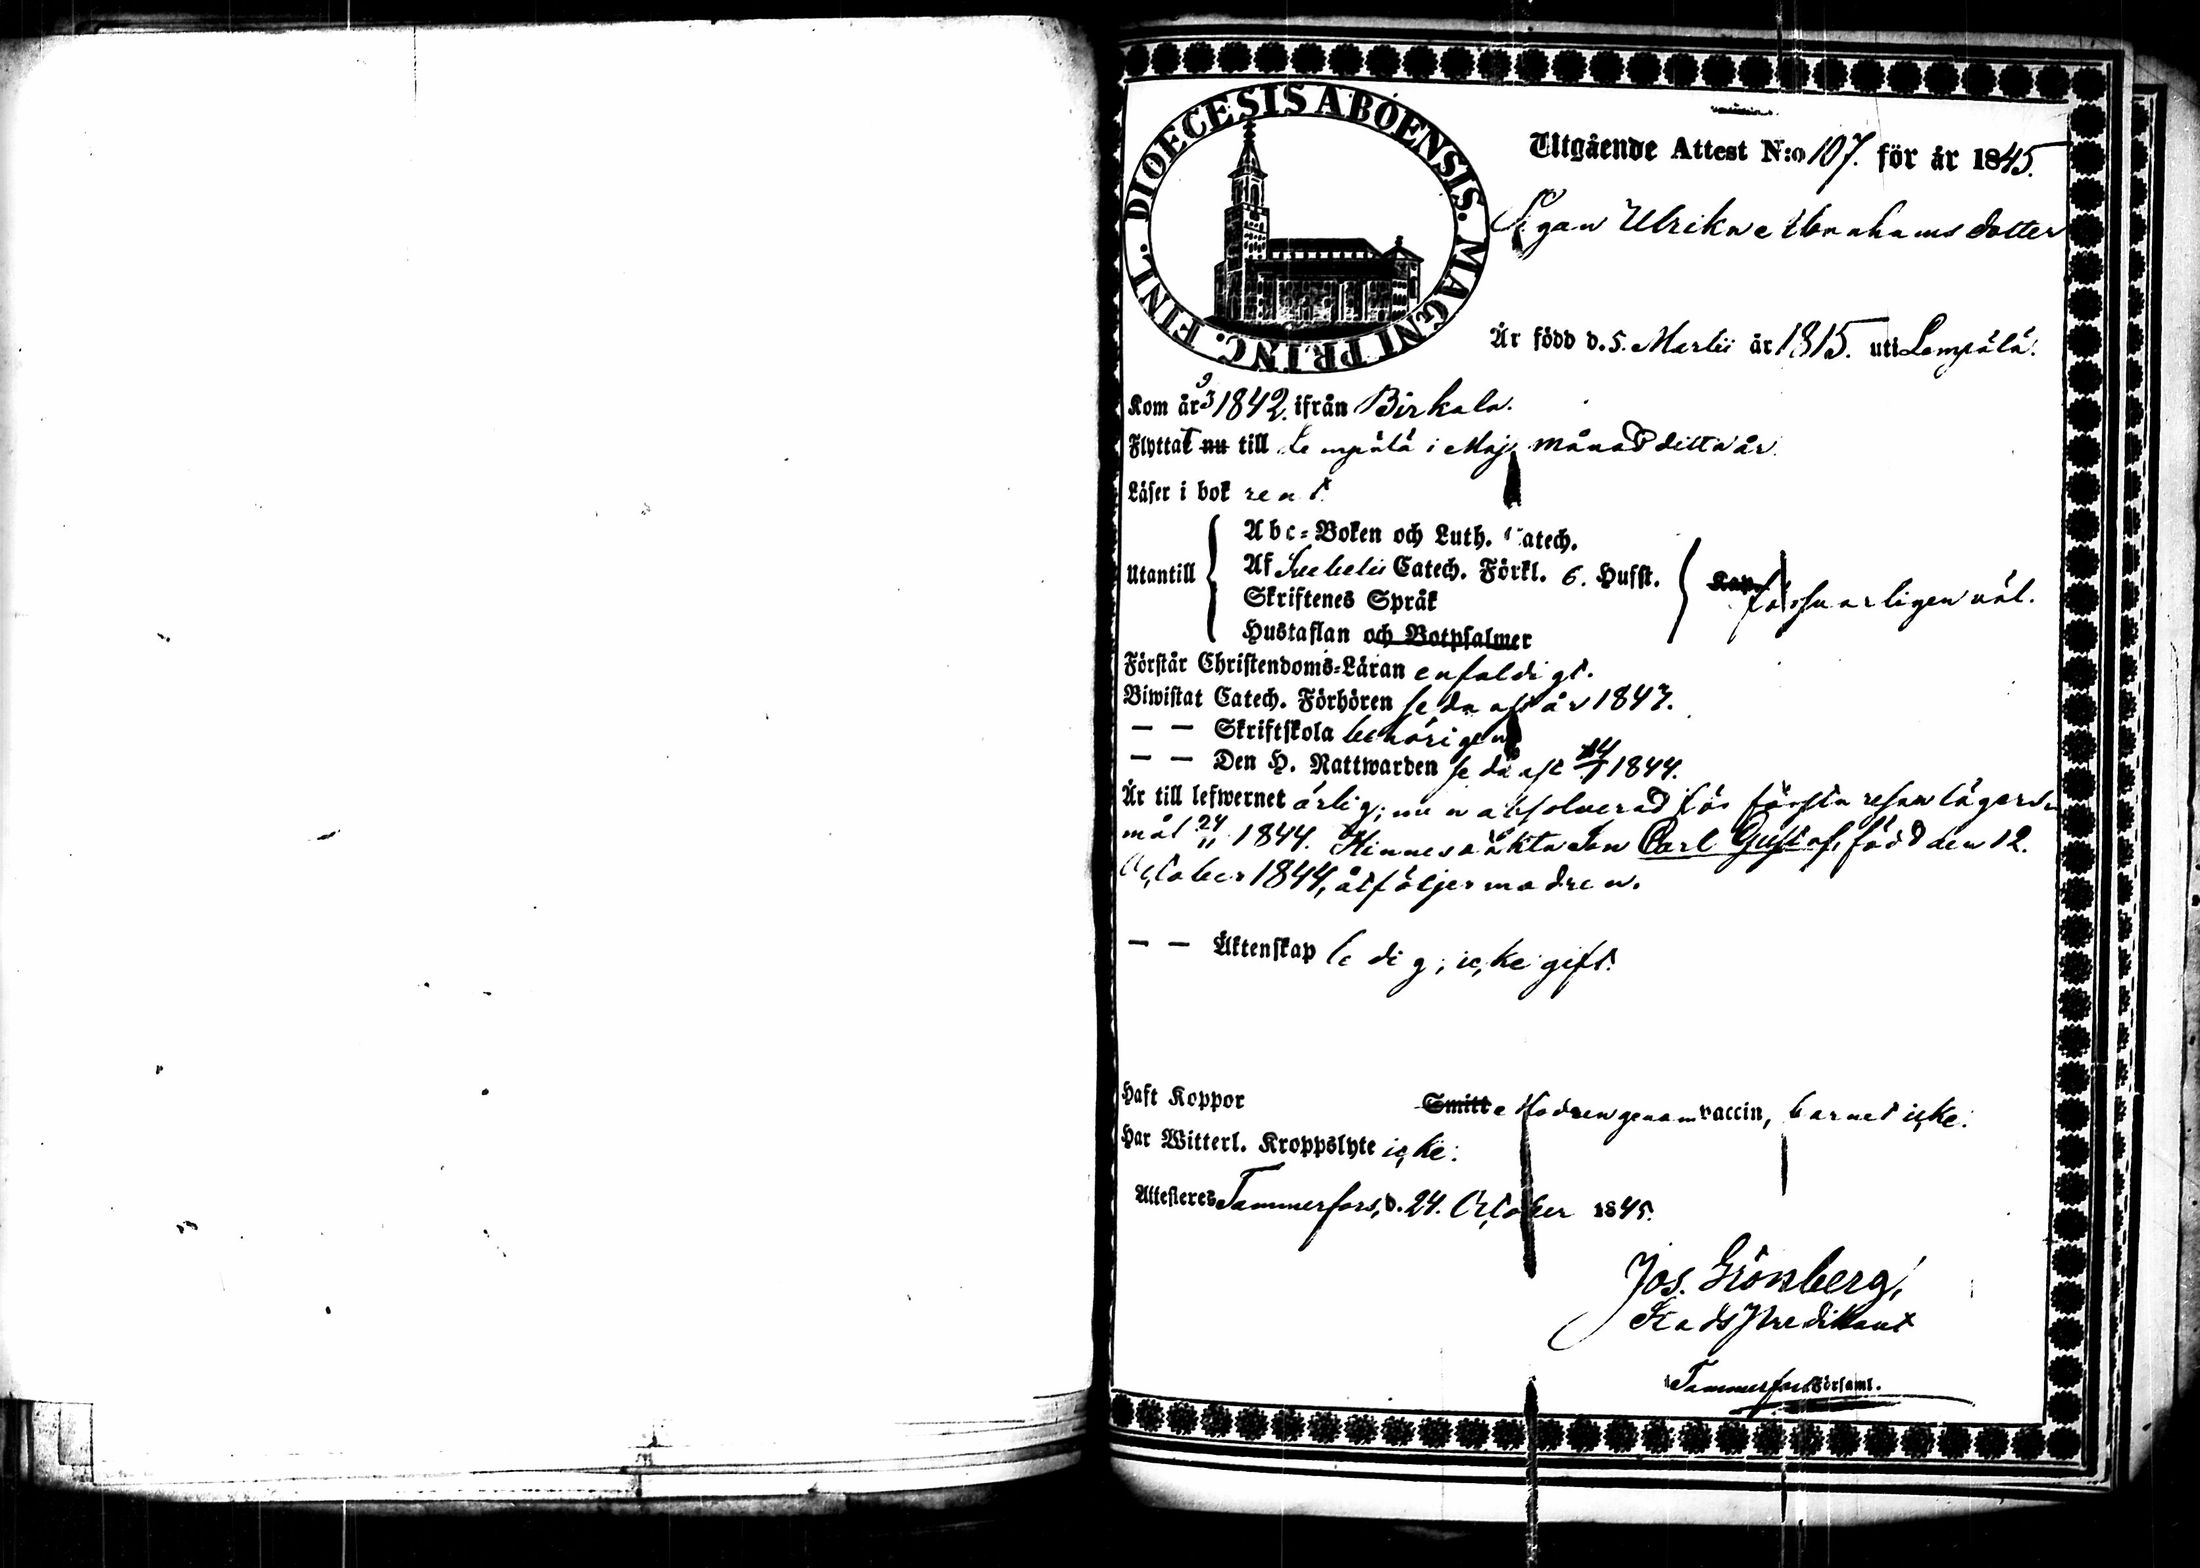 DIOECESIS ABOENSIS. MAGNI PRINC. FINL.
Utgående Attest N:o 107. för år 1845.
Pigan Ulrika Abrahamsdotter
Är född d. 5. Martii år 1815. uti Lempälä.
Kom år 1842. ifrån Birkala.
Flyttat nu till Lempälä i Maji månad detta år.
Läser i bok rent.
Utantill
Abc-Boken och Luth. Catech.
Af Svebelii Catech. Förkl. 6. Hufst.
Skriftenes Språk
Hustaflan och Botpsalmer
Kap. försvarligen väl.
Förstår Christendoms-Läran enfaldigt.
Biwistat Catech. Förhören sednast år 1843.
— — Skriftskola behörigen
— — Den H. Nattwarden sednast 1844.
Är till lefwernet ärlig; men absolverad för första resan lägers
mål 24/11 1844. Hinnes oäkta Son Carl Gustaf, född den 12.
October 1844, åtföljer modren.
— — Äktenskap ledig, icke gift.
Haft Koppor Smitt Modren genom vaccin, barnet icke.
Har Witterl. Kroppslyte icke.
Attesteres Tammerfors, d. 24. October 1845.
Jos. Grönberg,
Stads Predikant
Tammerfors Församl.